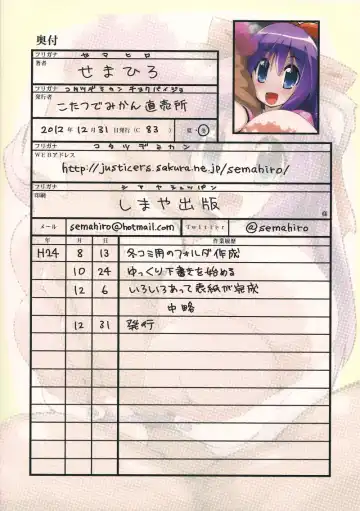 奥付
フリガナ セマヒロ
著者 せまひろ
フリガナ コタツデミカン チョクバイジョ
発行者 こたつでみかん 直売所
2012年12月31日発行(C83) 夏・冬
フリガナ コタツデミカン
WEBアドレス http://justicers.sakura.ne.jp/semahiro/
フリガナ シマヤシュッパン
印刷 しまや出版 様
メール semahiro@hotmail.com Twitter @semahiro
年 月 日 作業履歴
H24 8 13 冬コミ用のフォルダ作成
10 24 ゆっくり下書きを始める
12 6 いろいろあって表紙が完成
中略
12 31 発行